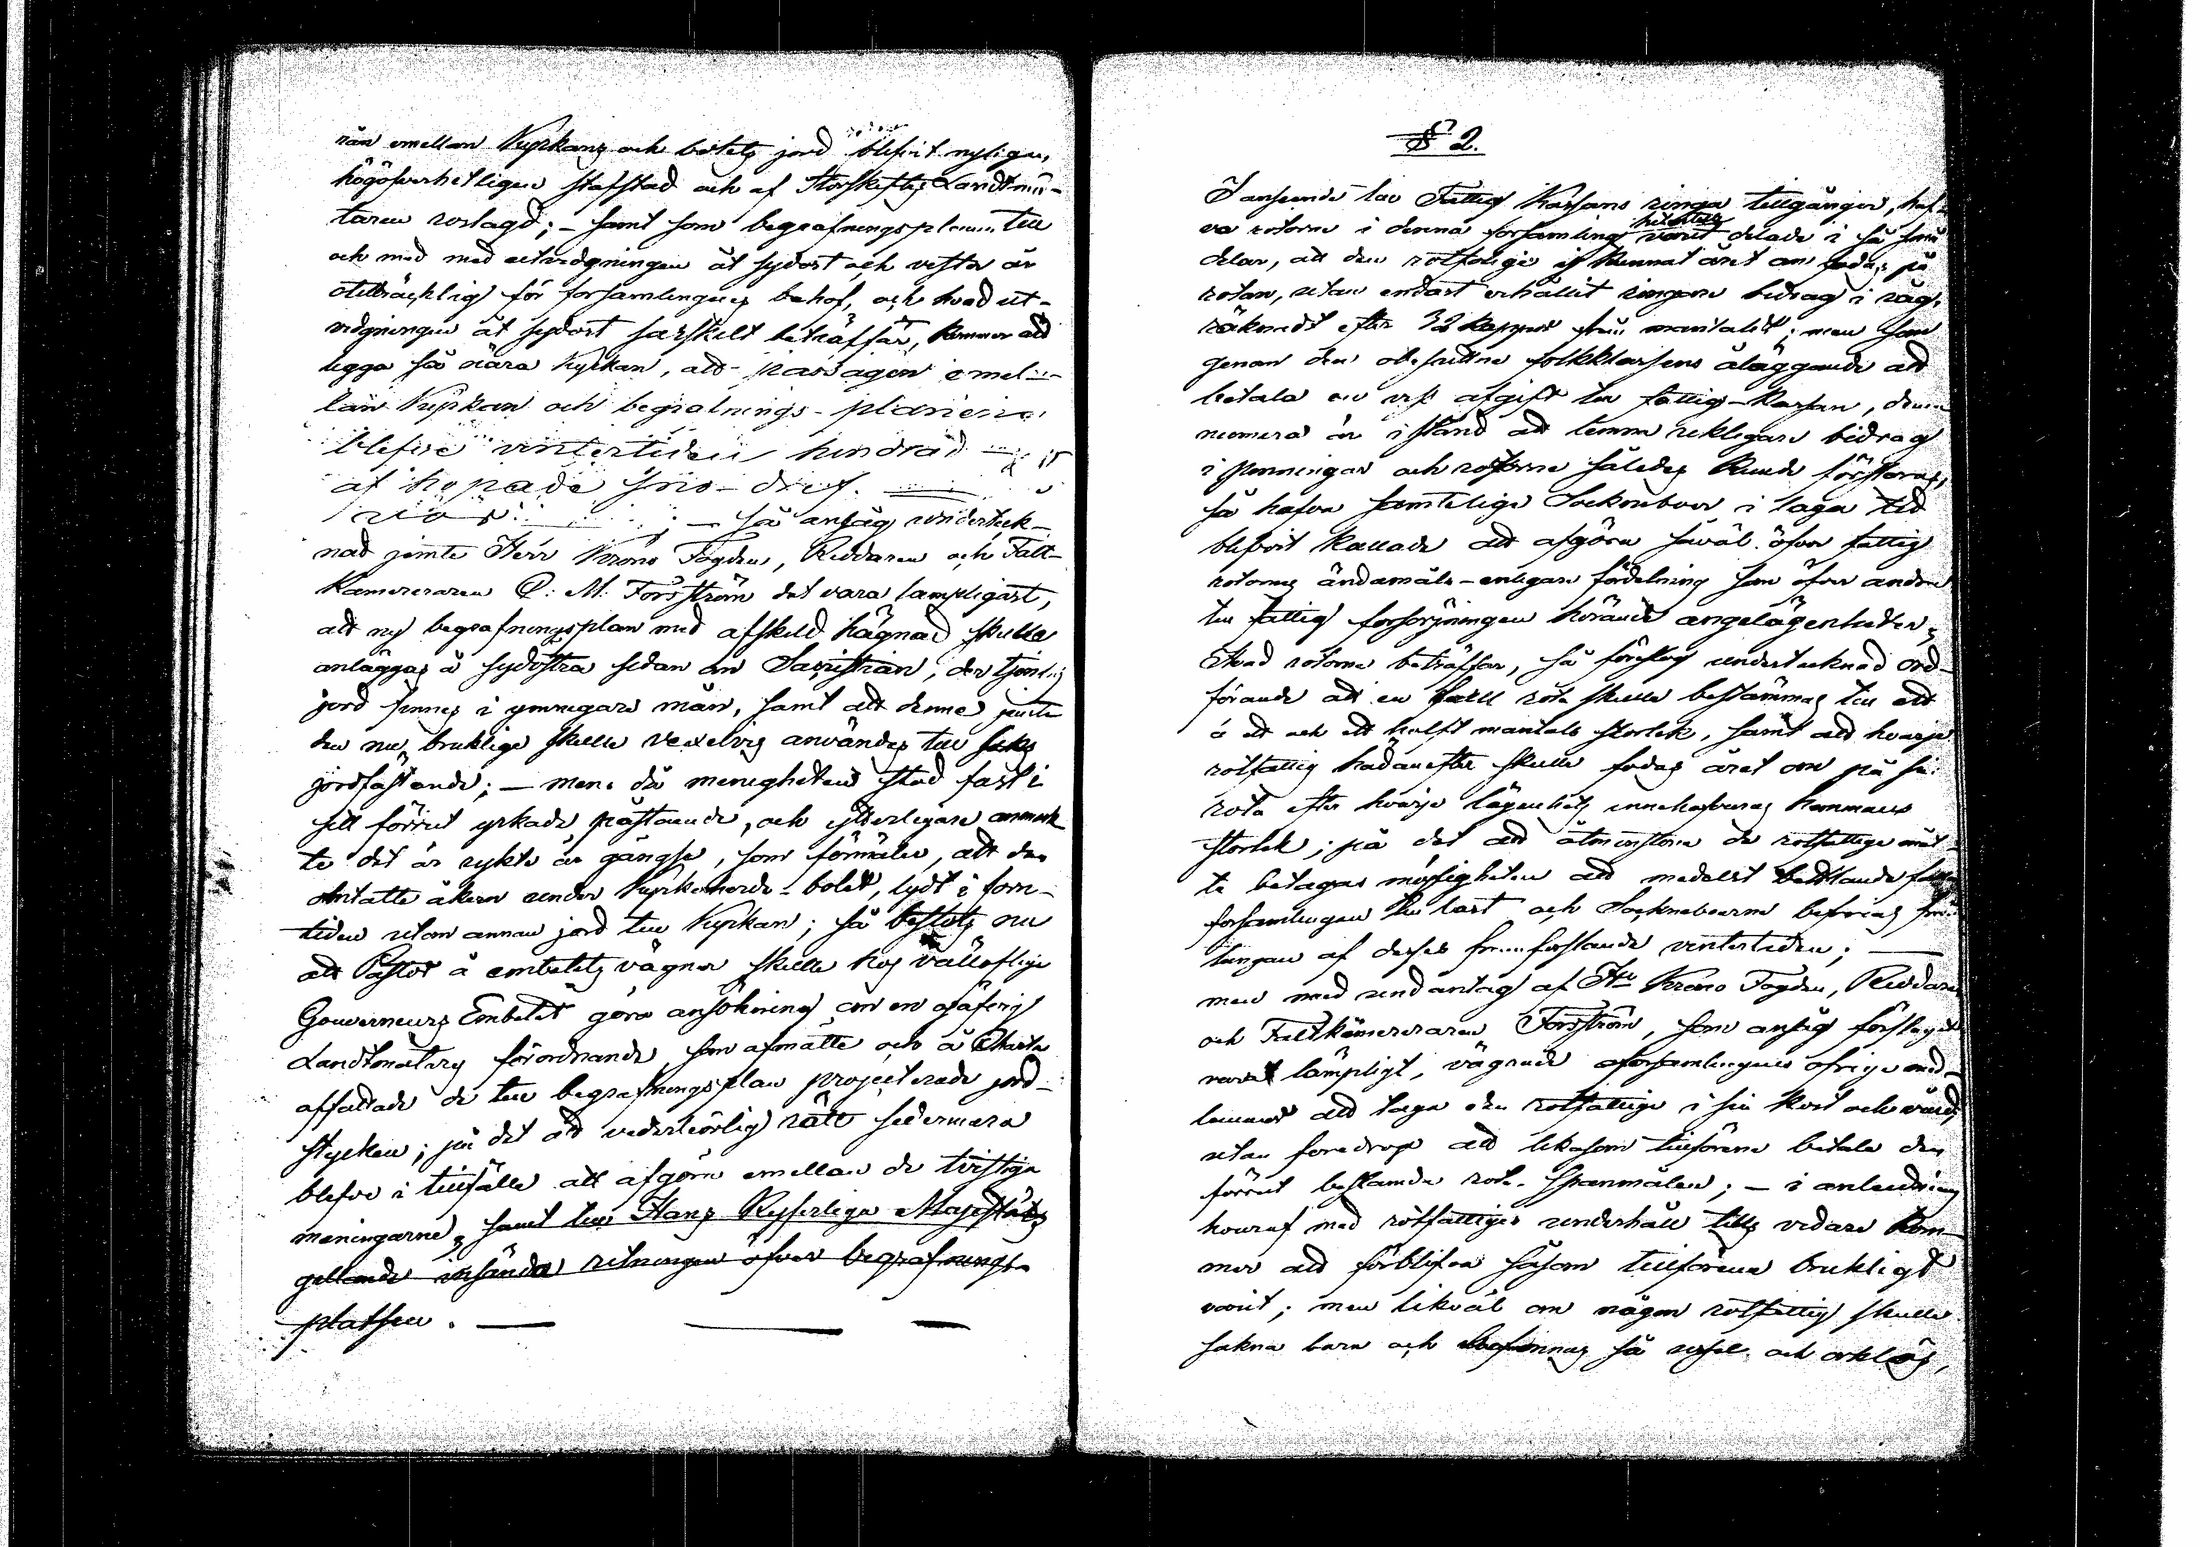 rån emellan Kyrkans och bolets jord blifvit nyligen,
högöfverhetligen stafstad och af Storskiftes Landtmä-
taren rörlagd; – samt som begrafningsplanen till
och med med utvidgningen åt sydost och vester är
otillräcklig för församlingens behof, och hvad ut-
vidgningen åt sydost särskilt beträffar, kommer att
ligga så nära Kyrkan, att passagen emel-
lan Kyrkan och begrafnings-planerna
blefve vintertiden hindrad
af hopade snö-drif.
; – så ansåg underteck-
nad jemte Herr Krono Fogden, Riddaren och Fält-
Kamereraren P. M. Forsström det vara lämpligast,
att ny begrafningsplan med afskild hägnad skulle
anläggas å sydöstra sidan om Sacristian, der tjenlig
jord finnes i ymnigare mån, samt att denne jemte
den nu brukliga skulle vexelvis användas till liks
jordfästande; – men då menigheten stod fast i
sitt förrut yrkade påstående, och ytterligare anmärk-
te det är rykte är gängse, som förmäler, att den
omtalte åkern under Kyrkoherde-bolet, lydt i forn-
tiden utom annan jord till Kyrkan; så beslöts nu
att Pastor å embetets vägnar skulle hos välloflige
Gouverneurs Embetet göra ansökning om en ojäfvig
Landtmätares förordnande, som afmätte och å Charta
affattade de till begrafningsplan projecterade jord-
stycken; på det att vederbörlig rätt sedermera
blefve i tillfälle att afgöra emellan de tvistiga
meningarne, samt till Hans Kejserliga Majestäts
gellande insända ritningen öfver begrafnings-
platsen. –
§ 2.
I anseende till Fattig Kassans ringa tillgångar, haf-
va rotorne i denna församling hittills varit delade i så små
delar, att den rotfattige ej kunnat året om födas på
rotan, utan endast erhållit ringare bidrag i råg,
räknadt efter 32 kappar från mantalet; men som
genom den obesuttne folkklassens åläggande att
betala en viss afgift till fattig-Kassan, denna
numera är i stånd att lemna rikligare bidrag
i penningar och rotorne således kunde förstoras,
så hafva samtelige Sockneboer i laga tid
blifvit kallade att afgöra såväl öfver fattig
rotornes ändamåls-enligare fördelning som öfver andra
till fattig försörjningen hörande angelägenheter.
Hvad rotorne beträffar, så föreslog undertecknad ord-
förande att en hvar rota skulle bestämmas till ett
à ett och ett halft mantals storlek, samt att hvarje
rotfattig hädanefter skulle födas året om på sin
rota efter hvarje lägenhets innehafvares hemmans
storlek; på det att åtminstone de rotfattige måt-
te betagas möjligheten att medelst bettlande falla
församlingen till last och Sockneboerne befrias från
tungan af deras forslande vintertiden; –
men med undantag af Herr Krono Fogden, Riddaren
och Fältkamereraren Forsström, som ansåg förslaget
varit lämpligt, vägrade församlingens öfriga med-
lemmar att taga den rotfattige i sin kost och vård,
utan föredrogo att likasom tillförene betala den
förrut bestämda rote-spanmålen; – i anledning
hvaraf med rotfattiges underhåll tills vidare kom-
mer att förblifva såsom tillförene brukligt
varit; men likväl om någon rotfattig skulle
sakna barn och befinnas så usel och orklös,